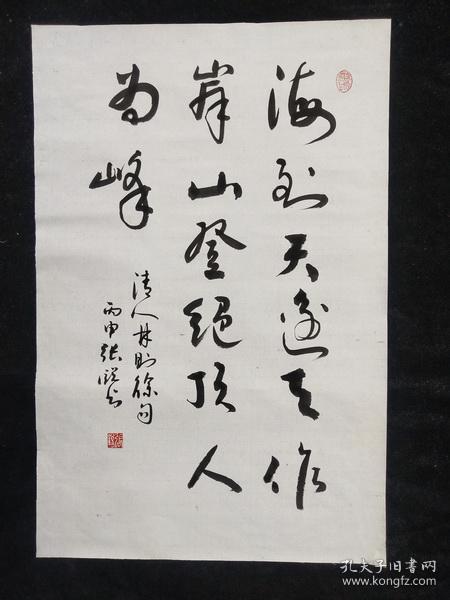 海到天邊天作
岸山登絕頂人
為峰
清人林則徐句
丙申張
孔夫子旧书网
www.kongfz.com